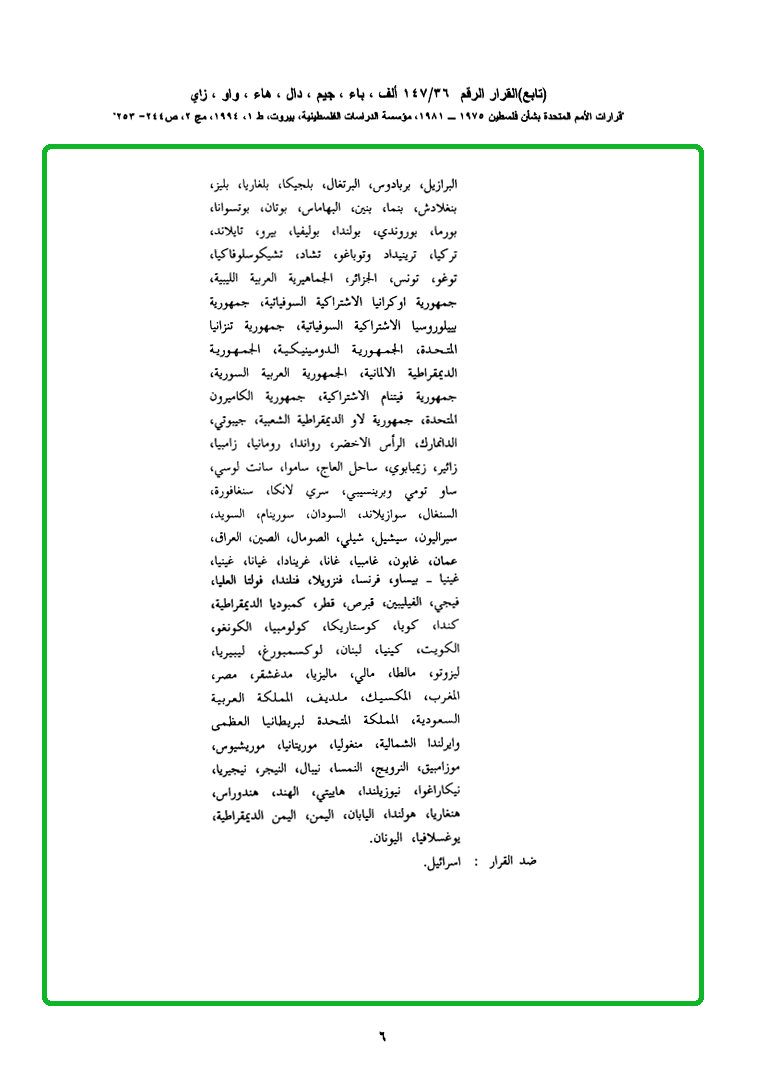 (تابع)القرار الرقم ١٤٧/٣٦ ألف ، باء ، جيم ، دال ، هاء ، واو ، زاي
"قرارات الأمم المتحدة بشأن فلسطين ١٩٧٥ ــ ١٩٨١، مؤسسة الدراسات الفلسطينية، بيروت، ط ١، ١٩٩٤، مج ٢، ص٢٤٤- ٢٥٣"
البرازيل، بربادوس، البرتغال، بلجيكا، بلغاريا، بليز،
بنغلادش، بنما، بنين، البهاماس، بوتان، بوتسوانا،
بورما، بوروندي، بولندا، بوليفيا، بيرو، تايلاند،
تركيا، ترينيداد وتوباغو، تشاد، تشيكوسلوفاكيا،
توغو، تونس، الجزائر، الجماهيرية العربية الليبية،
جمهورية اوكرانيا الاشتراكية السوفياتية، جمهورية
بييلوروسيا الاشتراكية السوفياتية، جمهورية تنزانيا
المتحدة، الجمهورية الدومينيكية، الجمهورية
الديمقراطية الالمانية، الجمهورية العربية السورية،
جمهورية فيتنام الاشتراكية، جمهورية الكاميرون
المتحدة، جمهورية لاو الديمقراطية الشعبية، جيبوتي،
الدانمارك، الرأس الاخضر، رواندا، رومانيا، زامبيا،
زائير، زيمبابوي، ساحل العاج، ساموا، سانت لوسي،
ساو تومي وبرينسيبي، سري لانكا، سنغافورة،
السنغال، سوازيلاند، السودان، سورينام، السويد،
سيراليون، سيشيل، شيلي، الصومال، الصين، العراق،
عمان، غابون، غامبيا، غانا، غرينادا، غيانا، غينيا،
غينيا ـ بيساو، فرنسا، فنزويلا، فنلندا، فولتا العليا،
فيجي، الفيليبين، قبرص، قطر، كمبوديا الديمقراطية،
كندا، كوبا، كوستاريكا، كولومبيا، الكونغو،
الكويت، كينيا، لبنان، لوكسمبورغ، ليبيريا،
ليزوتو، مالطا، مالي، ماليزيا، مدغشقر، مصر،
المغرب، المكسيك، ملديف، المملكة العربية
السعودية، المملكة المتحدة لبريطانيا العظمى
وايرلندا الشمالية، منغوليا، موريتانيا، موريشيوس،
موزامبيق، النرويج، النمسا، نيبال، النيجر، نيجيريا،
نيكاراغوا، نيوزيلندا، هاييتي، الهند، هندوراس،
هنغاريا، هولندا، اليابان، اليمن، اليمن الديمقراطية،
يوغسلافيا، اليونان.
ضد القرار : اسرائيل.
٦